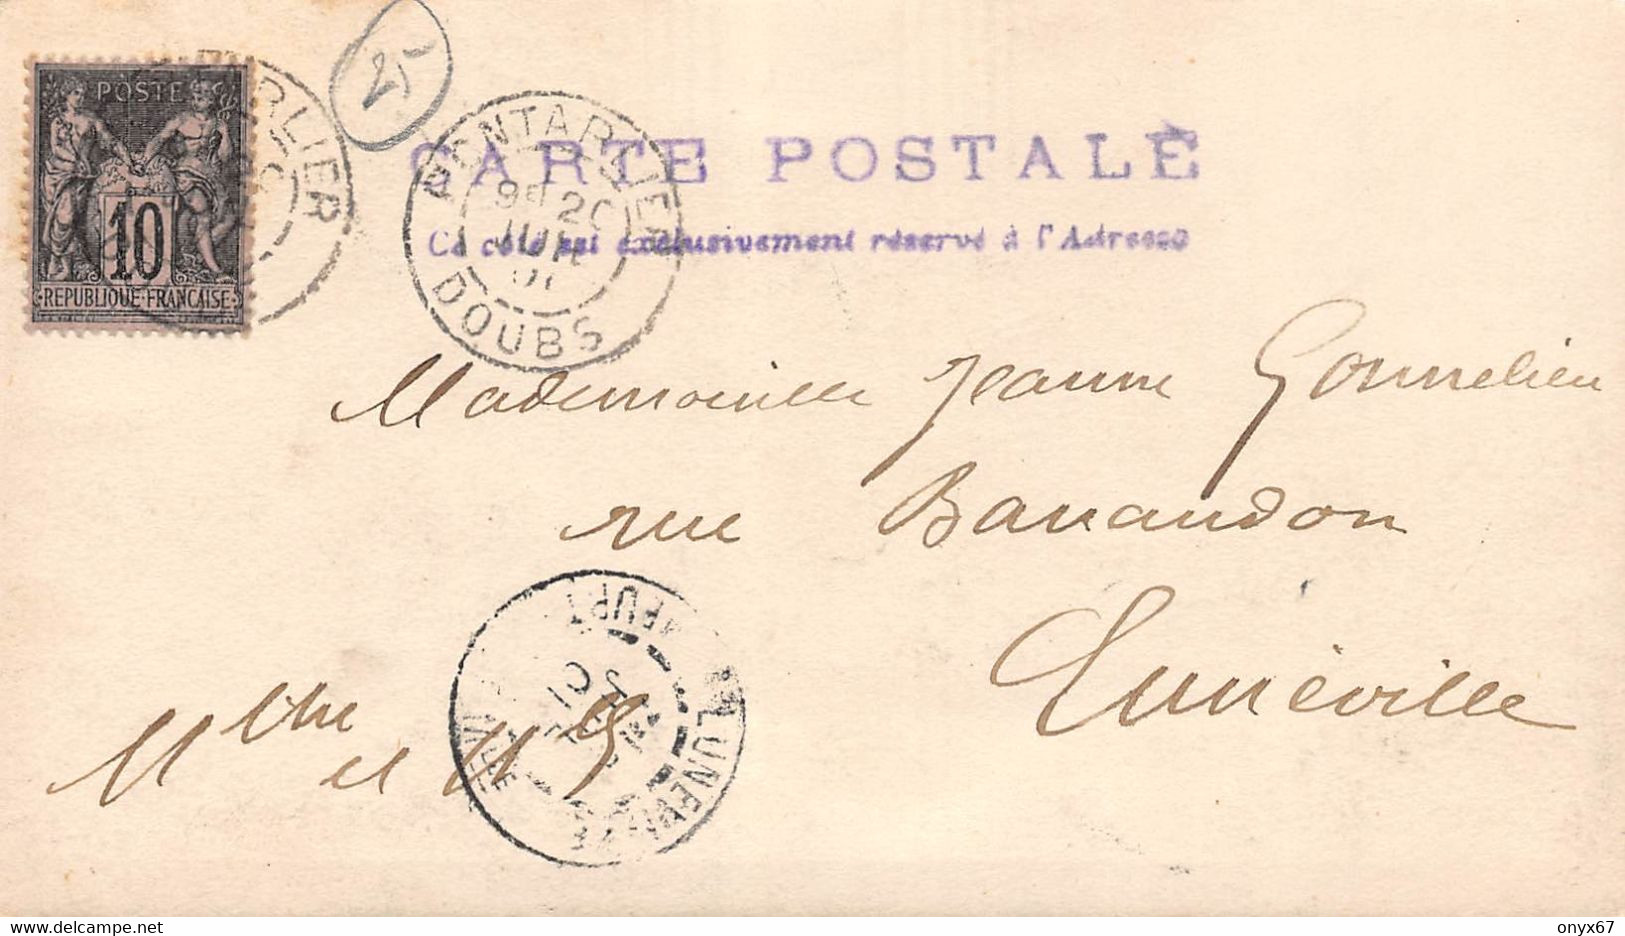 POSTE
10
REPUBLIQUE FRANÇAISE
RLIER
25
PONTARLIER
9E 20
JUIL
01
DOUBS
CARTE POSTALE
Ce côté est exclusivement réservé à l'Adresse
Mademoiselle Jeanne Gonnelieu
rue Banaudon
Lunéville
Mthe et M
LUNEVILLE
01
www.delcampe.net
onyx67